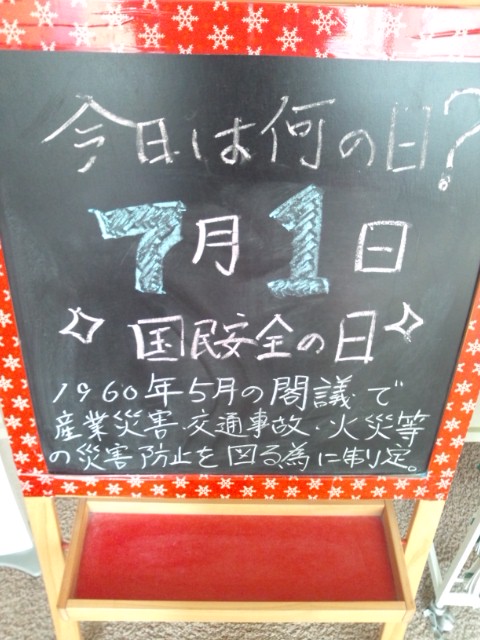 今日は何の日?
7月1日
国民安全の日
1960年5月の閣議で
産業災害・交通事故・火災等
の災害防止を図る為に制定。